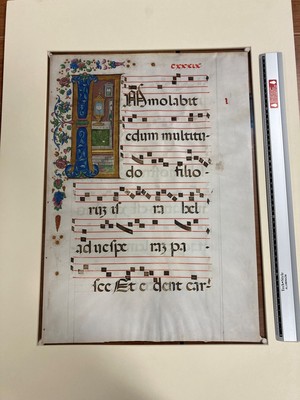 IMmolabit
edum multitu-
do filio-
ruʒ is ra hel
ad uespe raʒ pa-
sce Et edent car-